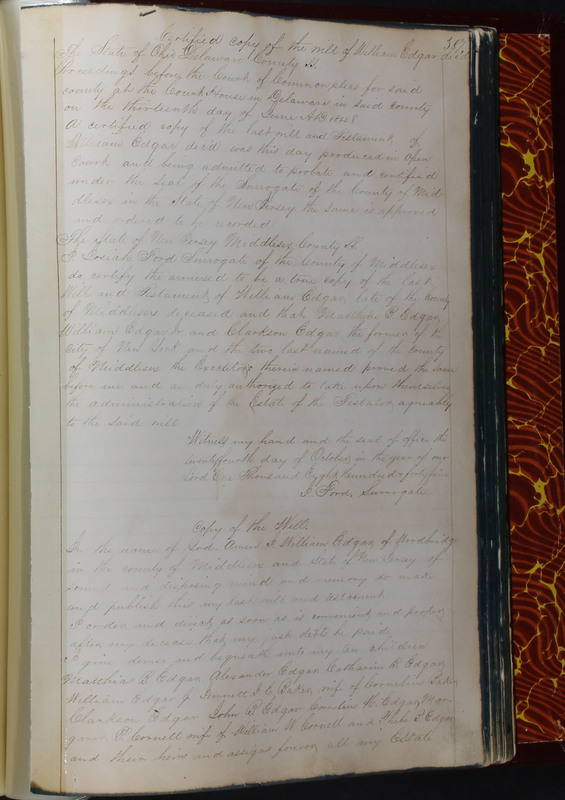 Certified copy of the will of William Edgar dec'd
The State of Ohio Delaware County Ss.
Proceedings before the Court of Common pleas for said
county at the Court House in Delaware in said county
on the thirteenth day of June AD 1848
A certified copy of the last will and Testament of
William Edgar dec'd was this day produced in Open
Court and being admitted to probate and certified
under the seal of the Surrogate of the County of Mid
dlesex in the State of New Jersey the same is approved
and ordered to be recorded
The State of New Jersey Middlesex County Ss
I Josiah Ford Surrogate of the County of Middlesex
do certify the annexed to be a true copy of the last
Will and Testament of William Edgar late of the County
of Middlesex deceased and that Matthias B Edgar,
William Edgar Jr and Clarkson Edgar the former of the
City of New York and the two last named of the County
of Middlesex the Executors therein named proved the same
before me and are duly authorized to take upon themselves
the administration of the Estate of the Testator agreeably
to the said will
Witness my hand and the seal of office the
twentyfourth day of October in the year of our
Lord One Thousand Eight hundred & forty five
J. Ford, Surrogate
Copy of the Will.
In the name of God Amen I William Edgar of Woodbridge
in the county of Middlesex and State of New Jersey of
sound and disposing mind and memory do make
and publish this my last will and testament
I order and direct as soon as is convenient and proper
after my decease that my just debts be paid,
I give devise and bequeath unto my children
Matthias B Edgar, Alexander Edgar Catharine R Edgar,
William Edgar Jr Jennett I E Baker, wife of Cornelius Baker
Clarkson Edgar John B Edgar Cornelius H. Edgar, Mar
garet P. Cornell wife of William W Cornell and Phebe P Edgar
and their heirs and assigns forever all my Estate